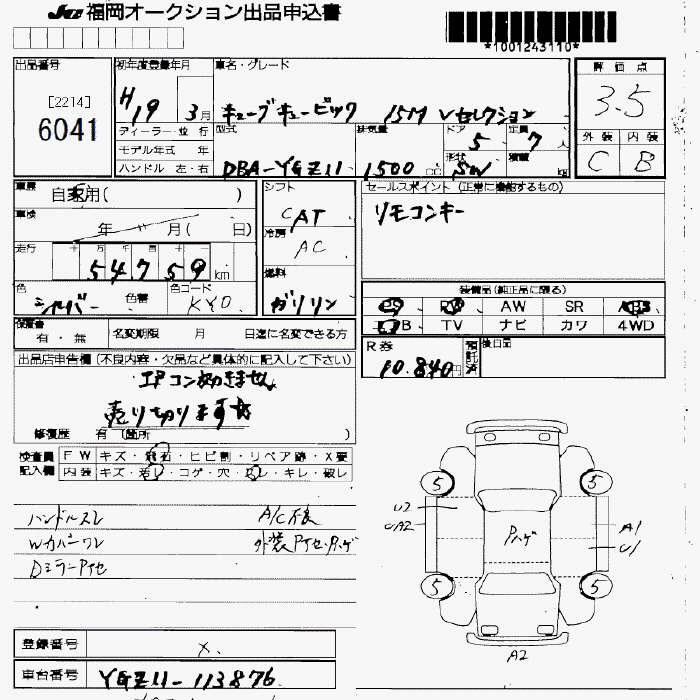 JU 福岡オークション出品申込書
*1001243110*
出品番号 [2214] 6041
初年度登録年月 H19 3月
車名・グレード キューブキュービック 15M Vセレクション
評価点 3.5
外装 C 内装 B
ディーラー・並行
モデル年式 年
ハンドル 左・右
型式 DBA-YGZ11
排気量 1500 cc
ドア 5
形状 SW
定員 7人
積載 kg
車歴 自家用( )
車検 年 月( 日)
走行 十 万 千 百 十 一 54759km
色 シルバー 色替 色コード KY0
シフト CAT
冷房 AC
燃料 ガソリン
セールスポイント(正常に機能するもの)
リモコンキー
装備品(純正品に限る)
PS PW AW SR ABS
エアB TV ナビ カワ 4WD
保証書 有・無 名変期限 月 日迄に名変できる方
R券 10.840円 預託済 後日品
出品店申告欄(不良内容・欠品など具体的に記入して下さい)
エアコン効きません
売り切ります
修復歴 有(箇所 )
検査員記入欄
FW キズ・飛石・ヒビ割・リペア跡・X要
内装 キズ・汚レ・コゲ・穴・スレ・キレ・破レ
ハンドルスレ A/C不良
Wカバーワレ 外装Pアセ・Pハゲ
DミラーPアセ
5 5
U2
UA2
Pハゲ
A1
U1
5 5
A2
登録番号 X.
車台番号 YGZ11-113876